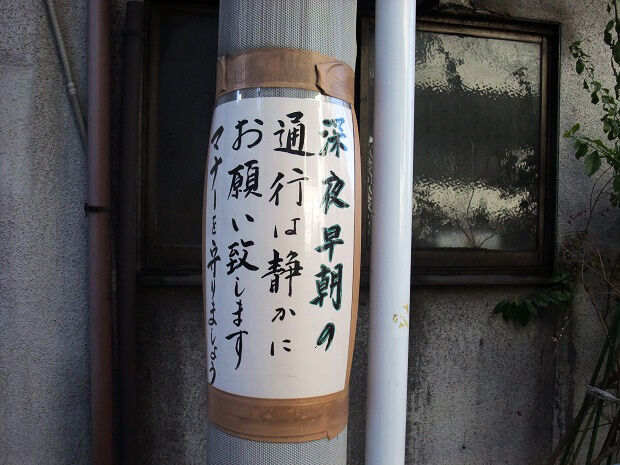 深夜早朝の
通行は静かに
お願い致します
マナーを守りましょう